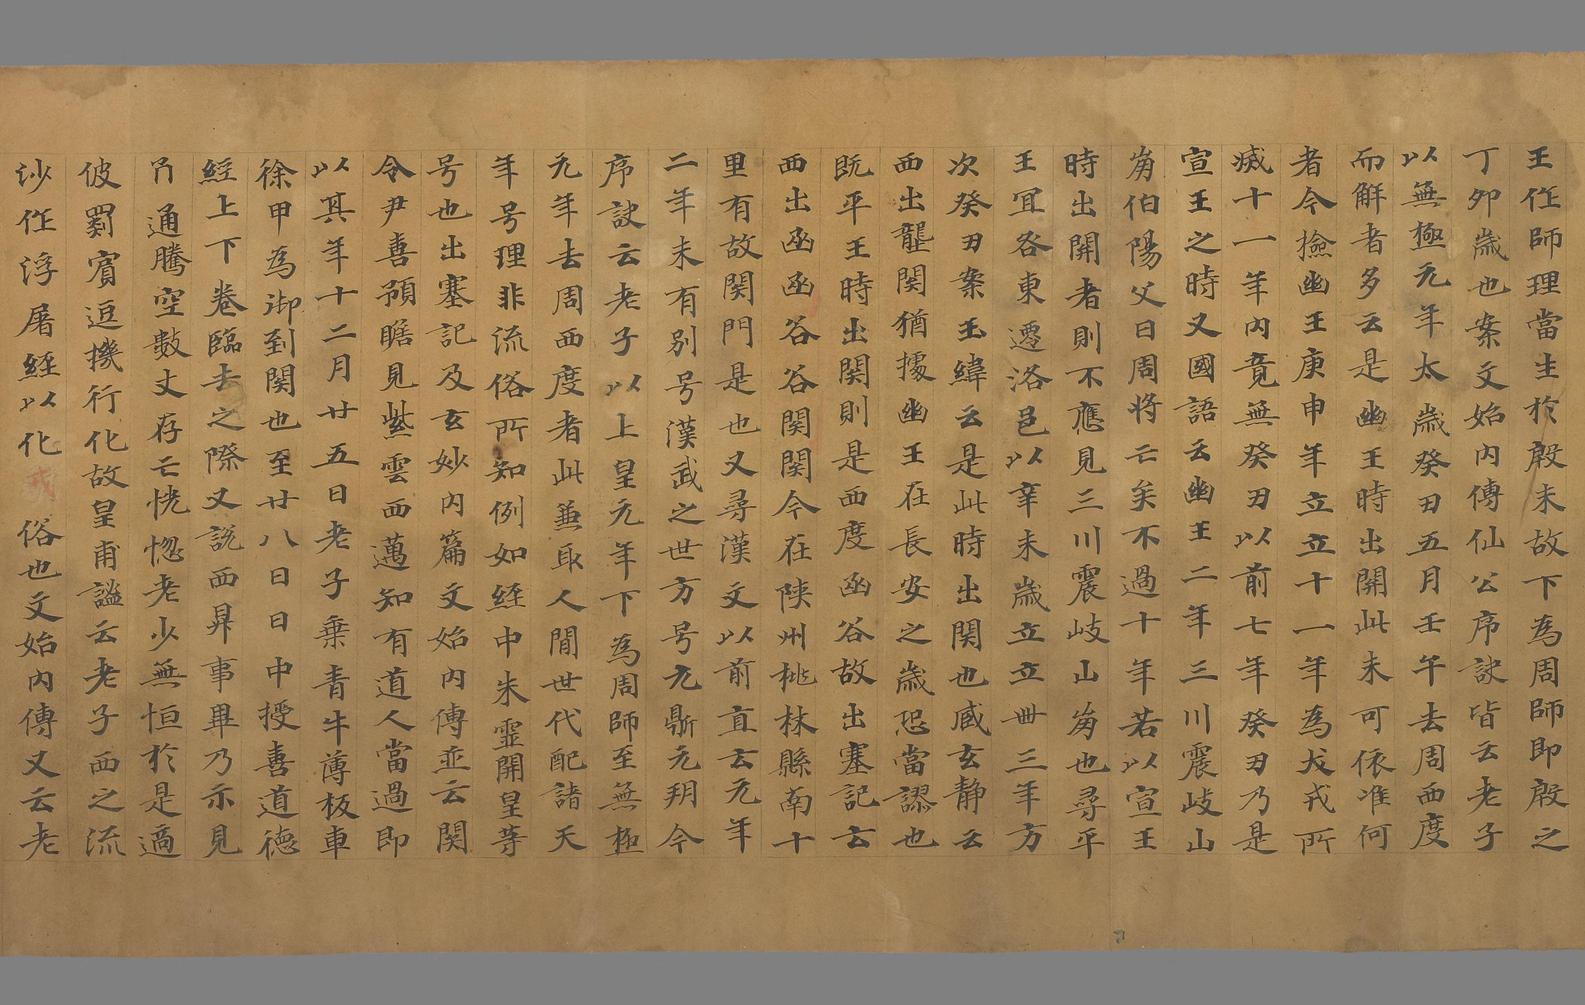 王作師理當生於殷末故下為周師即殷之
丁夘歲也案文始内傳仙公序訣皆云老子
以無極元年太歲癸丑五月壬午去周西度
而解者多云是幽王時出關此未可依准何
者今撿幽王庚申年立立十一年為犬戎所
滅十一年内竟無癸丑以前七年癸丑乃是
宣王之時又國語云幽王二年三川震岐山
崩伯陽父曰周将亡矣不過十年若以宣王
時出關者則不應見三川震岐山崩也尋平
王宜咎東遷洛邑以辛未歲立立卌三年方
次癸丑案玉緯云是此時出関也臧玄静云
西出龍関猶據幽王在長安之歲恐當謬也
既平王時出関則是西度函谷故出塞記云
西出函函谷谷関関今在陜州桃林縣南十
里有故関門是也又尋漢文以前直云元年
二年未有別号漢武之世方号元鼎元朔今
序訣云老子以上皇元年下為周師至無極
元年去周西度者此兼取人間世代配諸天
年号理非流俗所知例如經中朱靈開皇等
号也出塞記及玄妙内篇文始内傳並云関
令尹喜預瞻見紫雲西邁知有道人當過即
以其年十二月廿五日老子乗青牛薄板車
徐甲為御到関也至廿八日日中授喜道德
經上下卷臨去之際又説西昇事畢乃示見
通騰空數丈存亡恍惚老少無恒於是適
彼罽賓逗機行化故皇甫謐云老子西之流
沙作浮屠經以化俗也文始内傳又云老